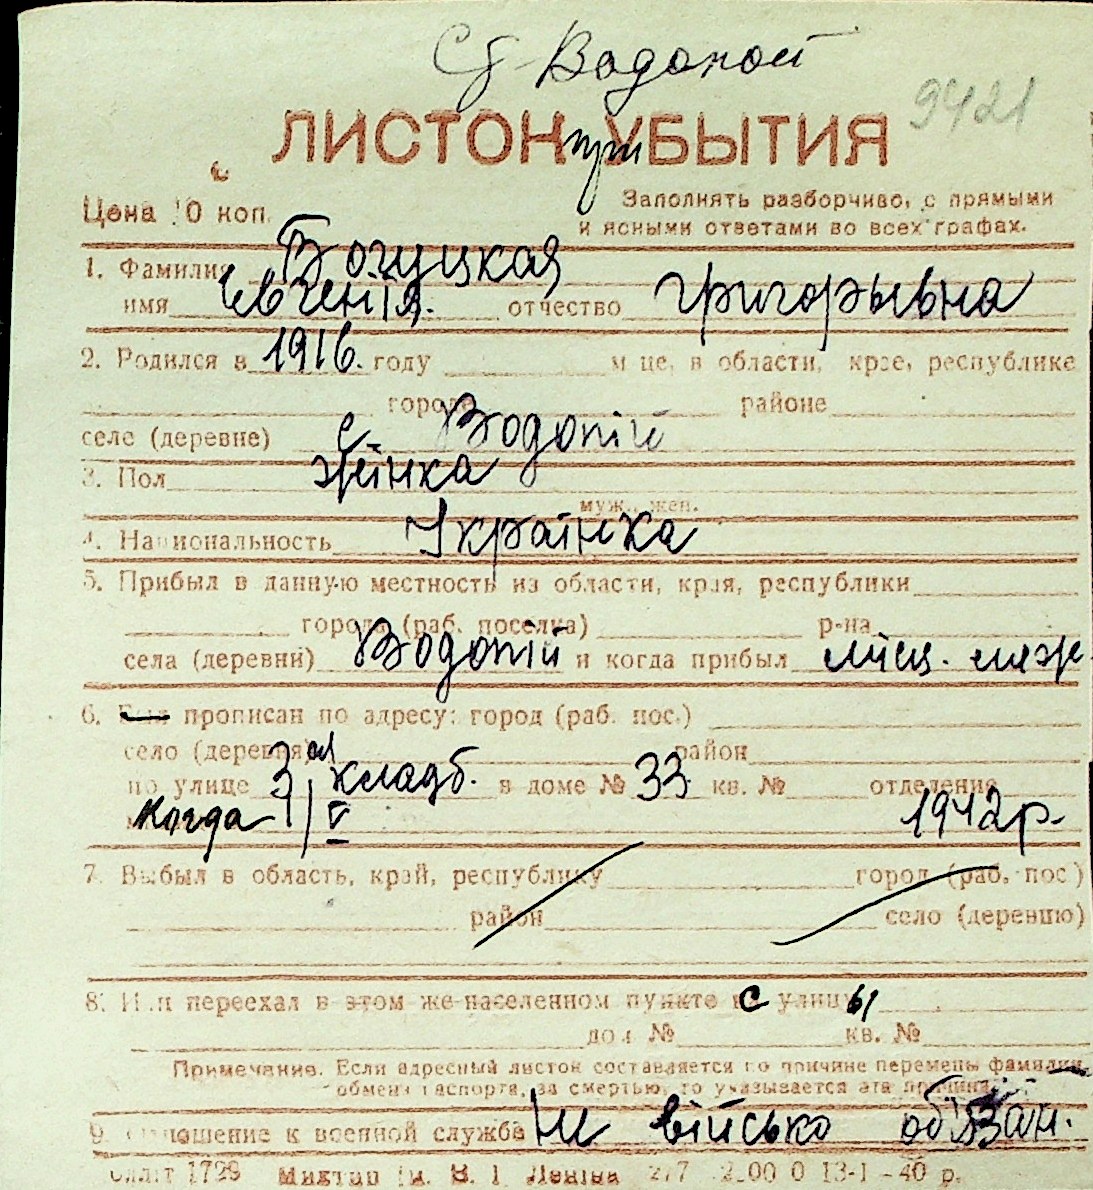 Сд-Водопой
9421
ЛИСТОК при УБЫТИЯ
Цена 10 коп.
Заполнять разборчиво, с прямыми
и ясными ответами во всех графах.
1. Фамилия Богуцкая
имя Евгенія. отчество Григорьевна
2. Родился в 1916. году м-це, в области, крае, республике
городе районе
селе (деревне) с Водопій
3. Пол жінка
муж., жен.
4. Национальность Українка
5. Прибыл в данную местность из области, края, республики
города (раб. поселка) р-на
села (деревни) Водопій и когда прибыл місц. меж.
6. Был прописан по адресу: город (раб. пос.)
село (деревня) район
по улице 3ая кладб. в доме № 33 кв. № отделение
когда 1/V 1942 р.
7. Выбыл в область, край, республику город (раб. пос.)
район село (деревню)
8. Или переехал в этом же населенном пункте с улицы
дом № кв. №
Примечание. Если адресный листок составляется по причине перемены фамилии,
обмена паспорта, за смертью, то указывается эта причина.
9. Отношение к военной службе Не військо обізан.
1729 ім. В. І. Леніна 277 13-1-40 р.